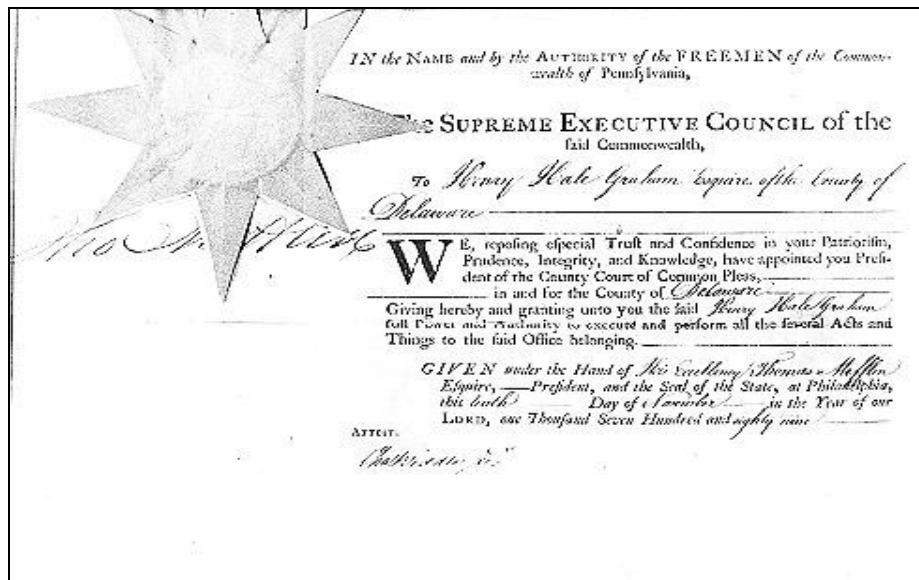 IN the NAME and by the AUTHORITY of the FREEMEN of the Common-
wealth of Pennsylvania,
The SUPREME EXECUTIVE COUNCIL of the
said Commonwealth,
To Henry Hale Graham Esquire of the County of
Delaware
WE, reposing especial Trust and Confidence in your Patriotism,
Prudence, Integrity, and Knowledge, have appointed you Presi-
dent of the County Court of Common Pleas,
in and for the County of Delaware
Giving hereby and granting unto you the said Henry Hale Graham
full Power and Authority to execute and perform all the several Acts and
Things to the said Office belonging.
GIVEN under the Hand of His Excellency Thomas Mifflin
Esquire, President, and the Seal of the State, at Philadelphia,
this tenth Day of November in the Year of our
LORD, one Thousand Seven Hundred and eighty nine
ATTEST.